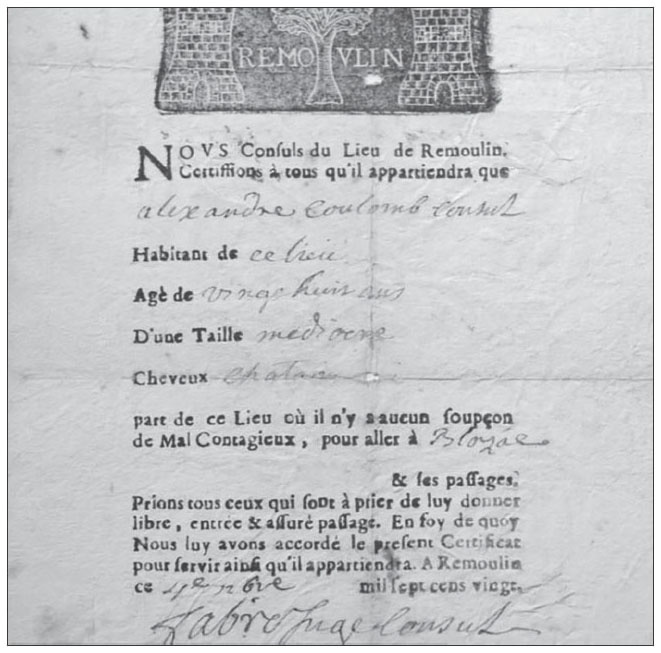 REMOVLIN
NOVS Conſuls du Lieu de Remoulin.
Certiffions à tous qu'il appartiendra que
alexandre Coulomb Consul
Habitant de ce lieu
Agè de vingt huit ans
D'une Taille mediocre
Cheveux chatain
part de ce Lieu où il n'y a aucun ſoupçon
de Mal Contagieux, pour aller à
& ſes paſſages.
Prions tous ceux qui ſont à prier de luy donner
libre, entrée & aſſuré paſſage. En foy de quoy
Nous luy avons accordé le preſent Certificat
pour ſervir ainſi qu'il appartiendra. A Remoulin
ce mil ſept cens vingt,
Consul